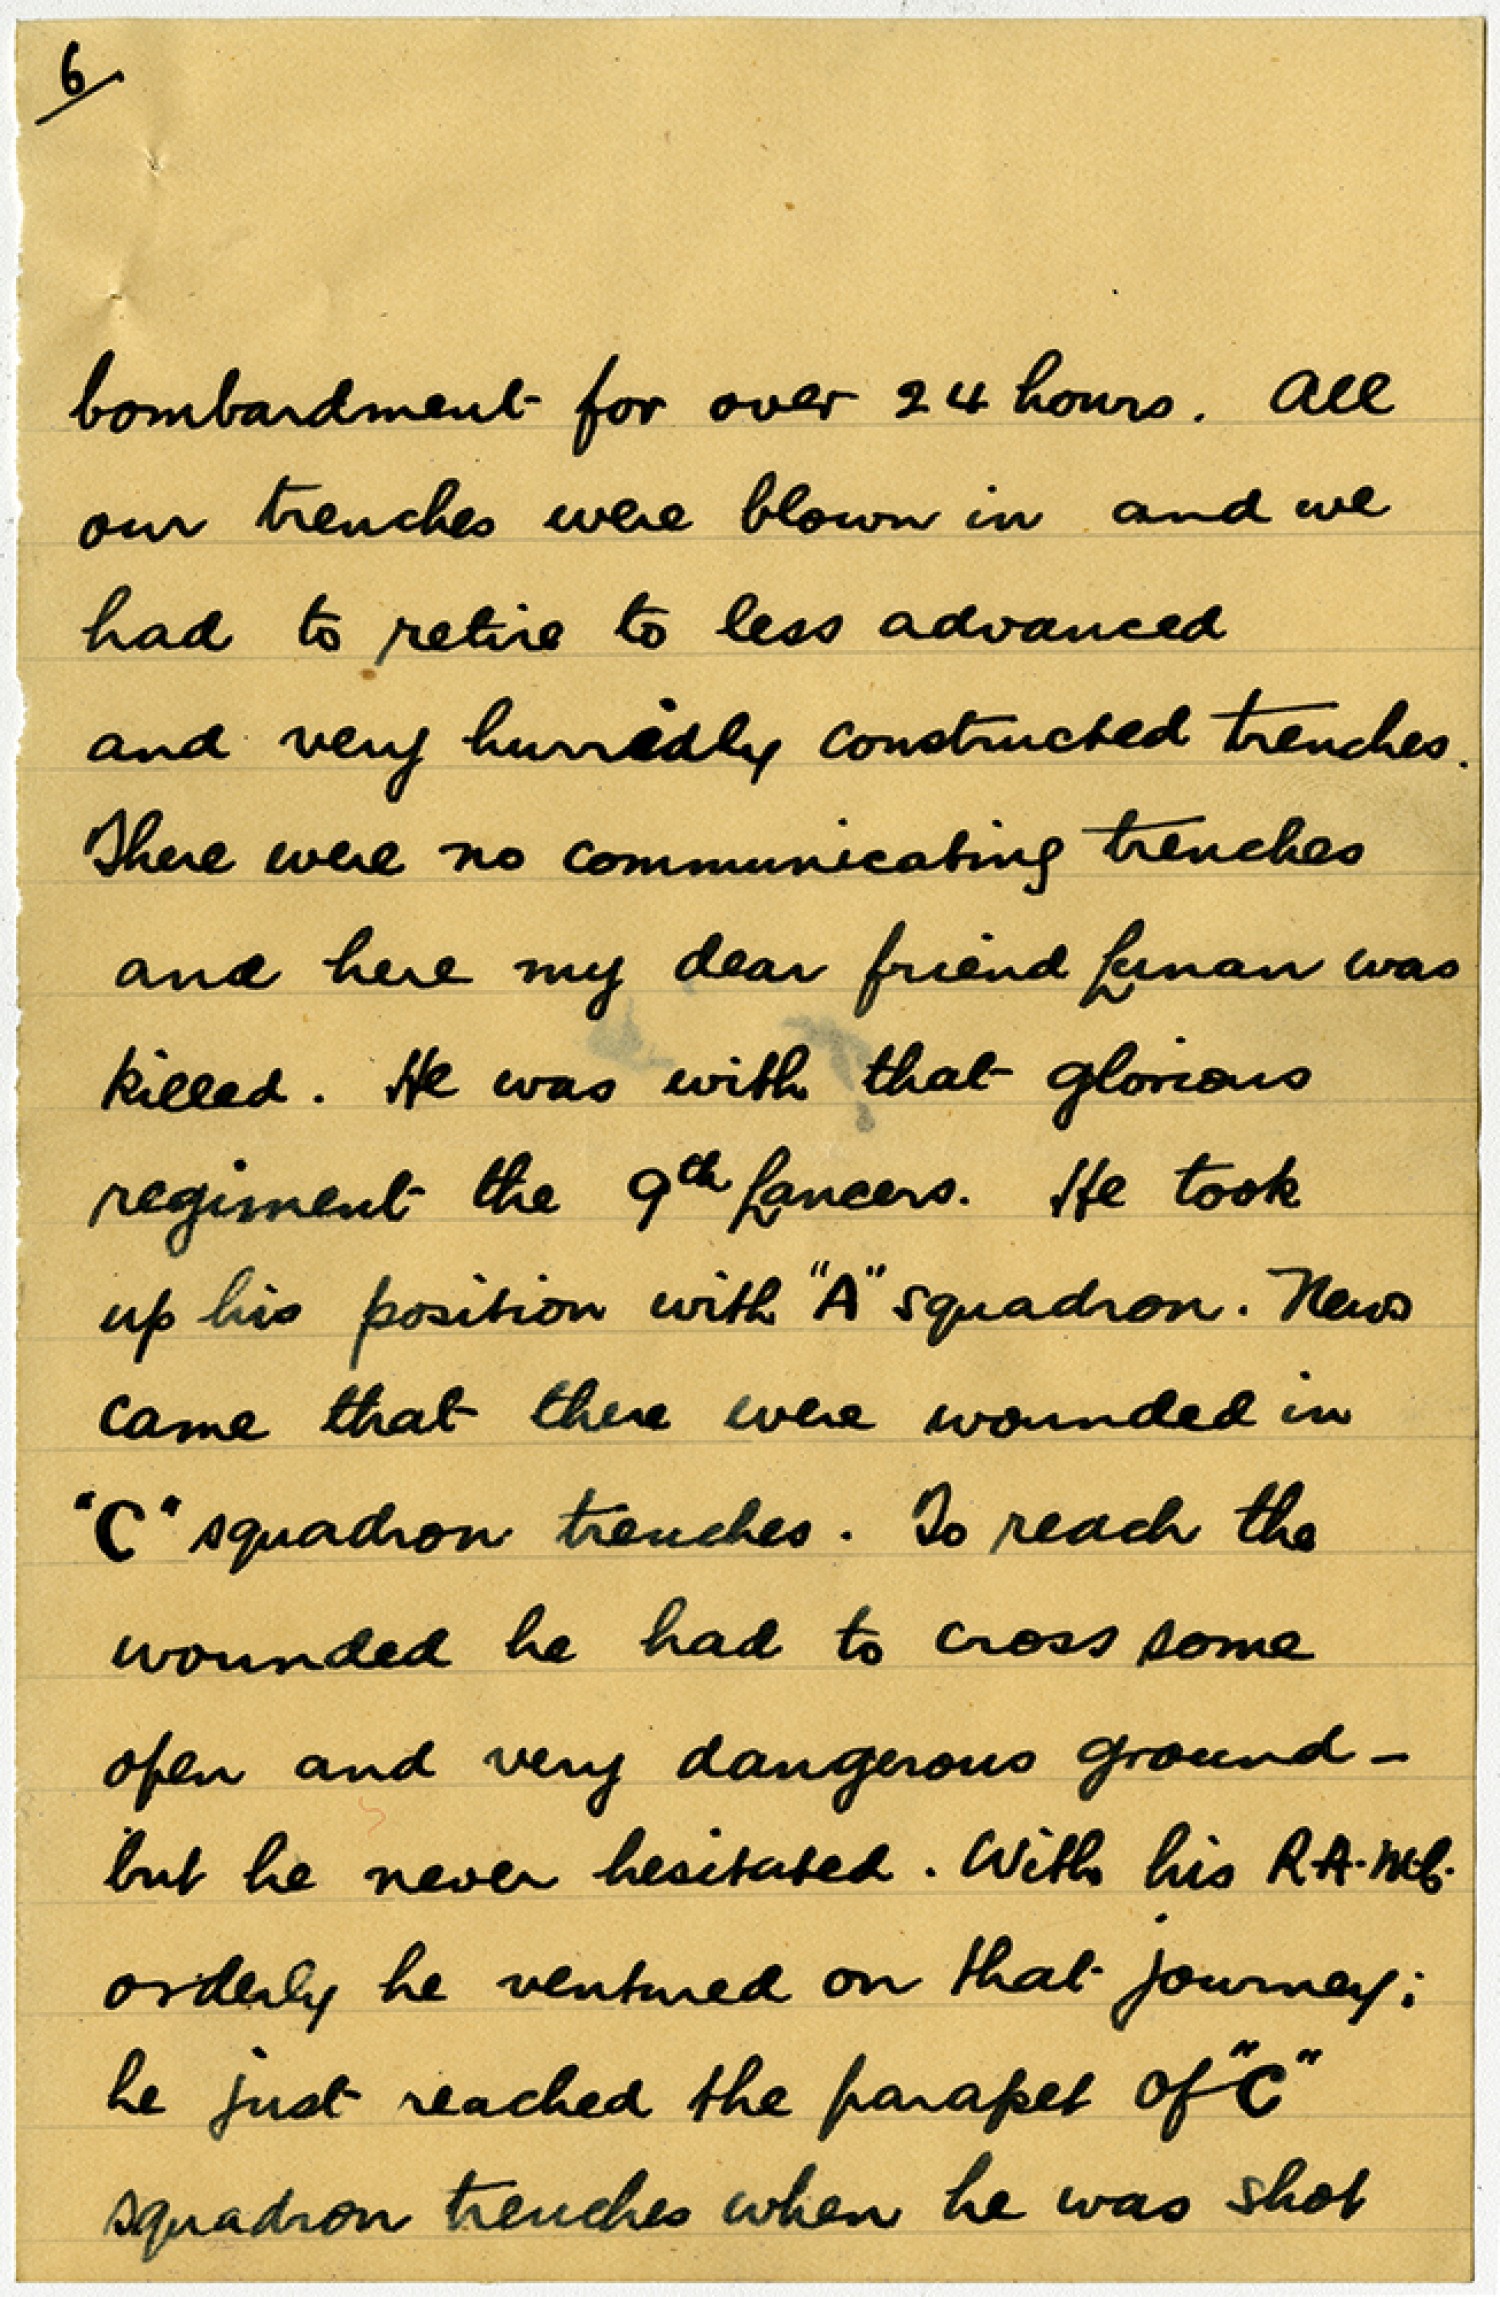 6
bombardment for over 24 hours. All
our trenches were blown in and we
had to retire to less advanced
and very hurridly constructed trenches.
There were no communicating trenches
and here my dear friend Lunan was
killed. He was with that glorious
regiment the 9th Lancers. He took
up his position with "A" squadron. News
came that there were wounded in
"C" squadron trenches. To reach the
wounded he had to cross some
open and very dangerous ground –
but he never hesitated. With his R.A.M.C.
orderly he ventured on that journey;
he just reached the parapet of "C"
squadron trenches when he was shot